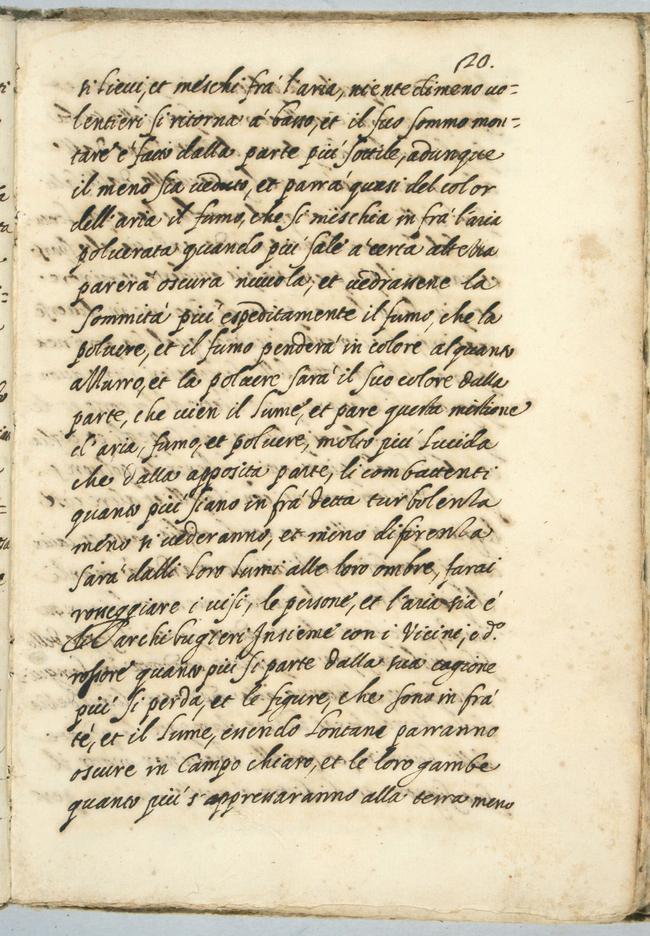 20.
ti lievi, et meschi frà l'aria, nientedimeno uo=
lentieri si ritorna à basso, et il suo sommo mon=
tare è fatto dalla parte più sottile, adunque
il meno sia ueduto, et parrà quasi del color
dell'aria il fumo, che si meschia in frà l'aria
poluerata quando più sale à certa altezza
parerà oscura nuuola, et uedrassene la
sommità più espeditamente il fumo, che la
poluere, et il fumo penderà in colore alquanto
azzurro, et la poluere sarà il suo colore dalla
parte, che uien il lume, et pare questa mistione
d'aria, fumo, et poluere, molto più lucida
che dalla apposita parte, li combattenti
quanto più siano in frà detta turbolenza
meno si uederanno, et meno difirenza
sarà dalli loro lumi alle loro ombre, farai
rosseggiare i uisi, le persone, et l'aria sia è
archibugieri Insieme con i Vicini, e d.º
rossore quanto più si parte dalla sua cagione
più si perda, et le figure, che sono in frà
te, et il lume, essendo lontane parranno
oscure in Campo chiaro, et le loro gambe
quanto più s'appressaranno alla terra meno